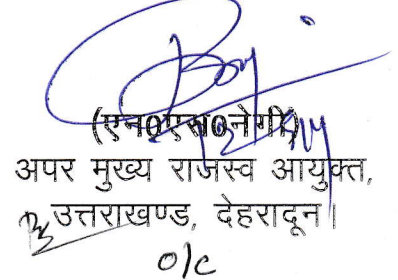 (एन0एस0नेगी)
अपर मुख्य राजस्व आयुक्त,
उत्तराखण्ड, देहरादून।
O/C